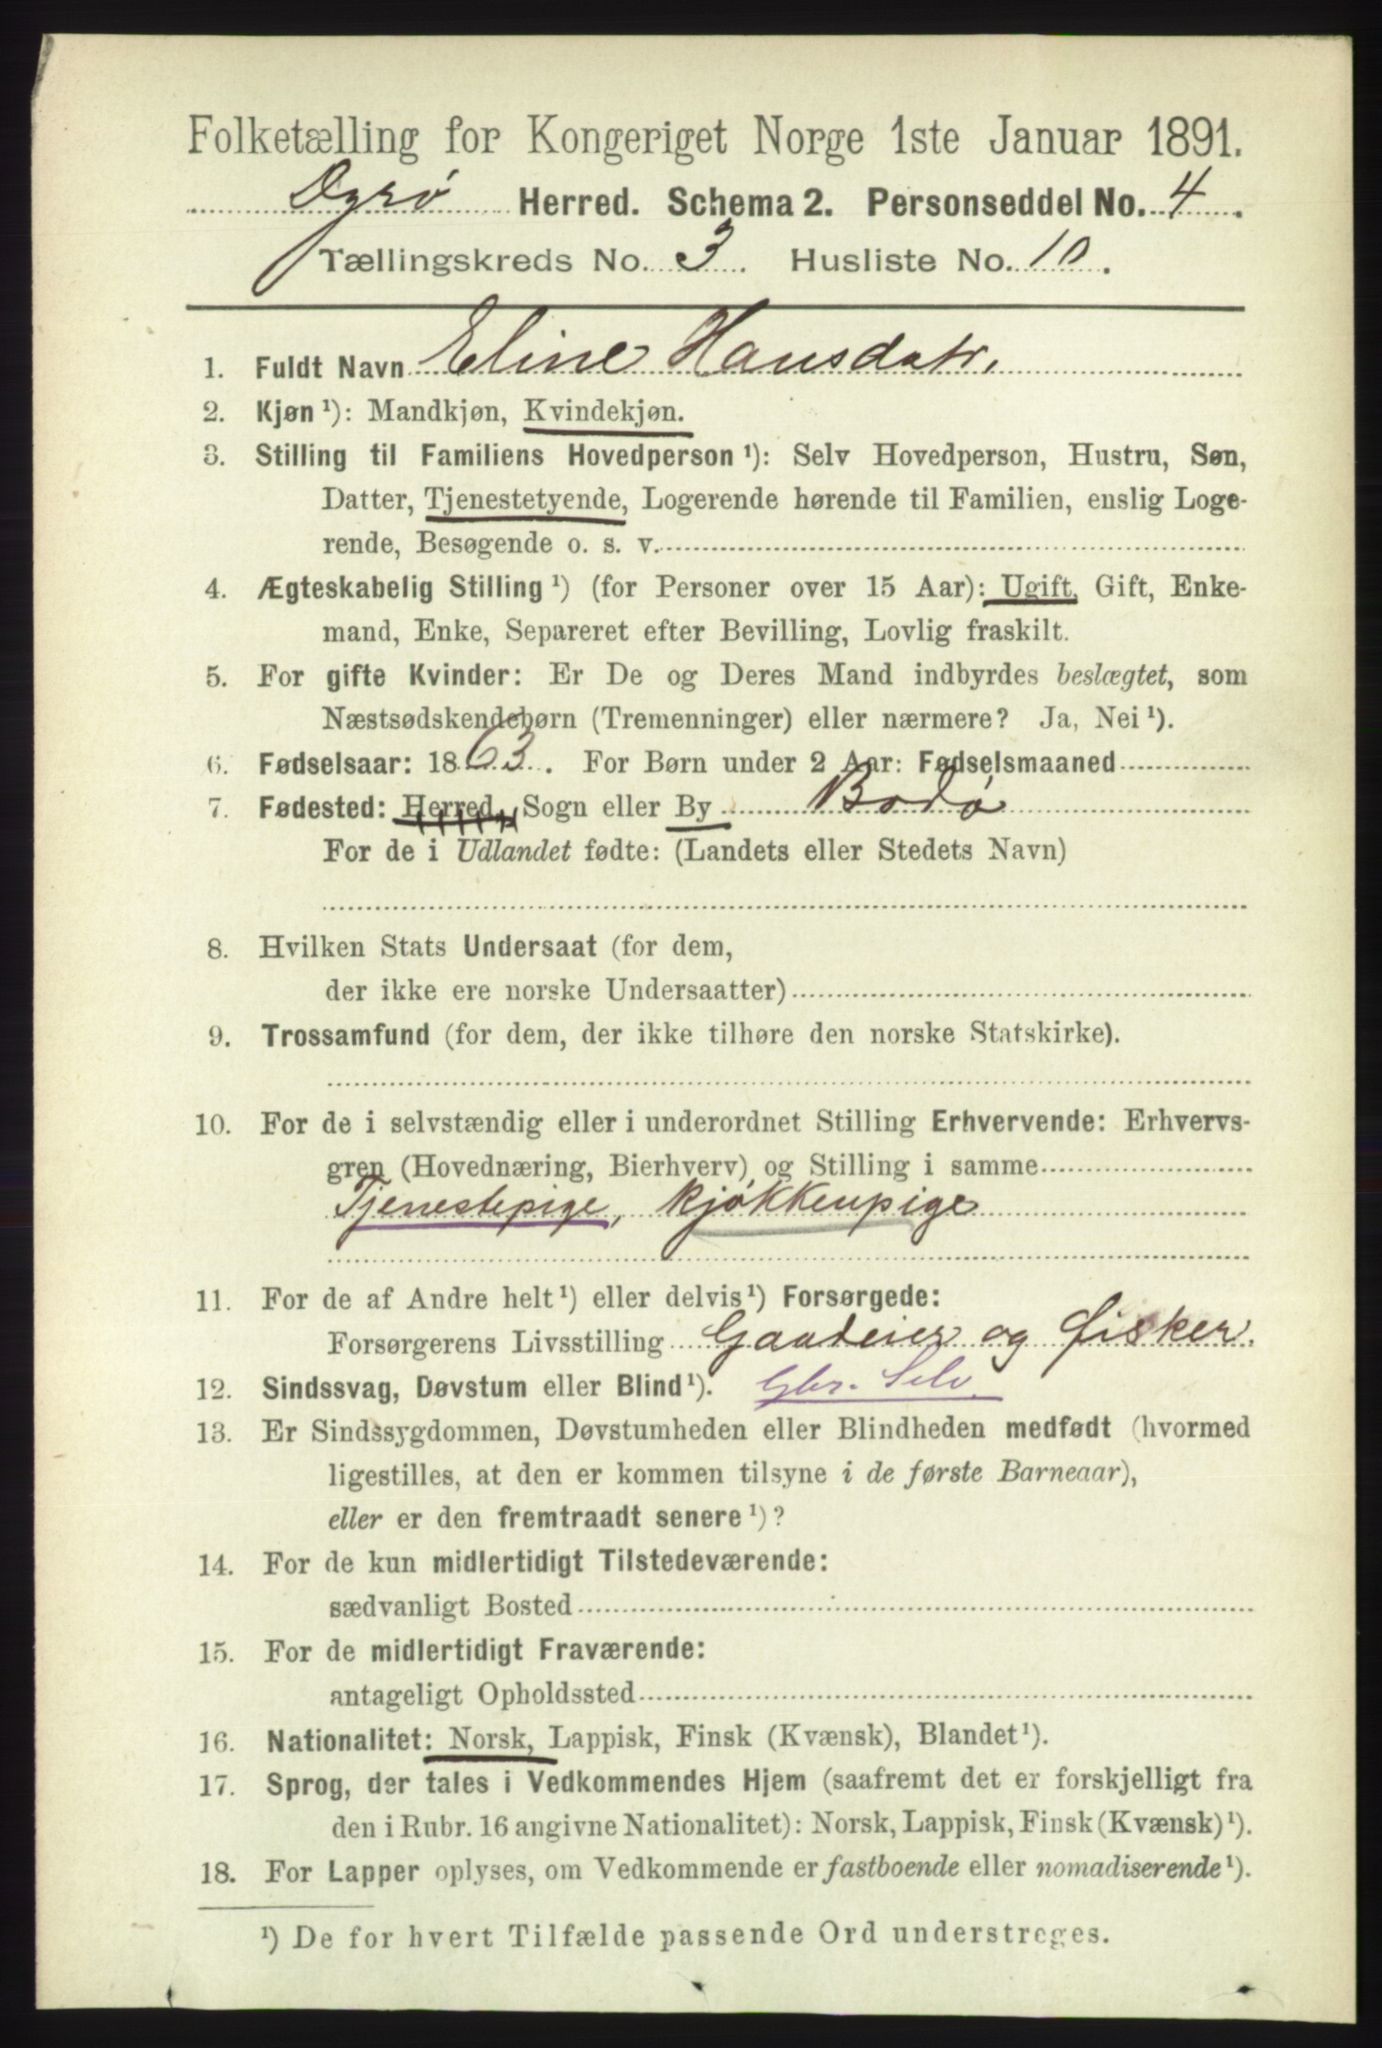 Folketælling for Kongeriget Norge 1ste Januar 1891.
Dyrø Herred. Schema 2. Personseddel No. 4.
Tællingskreds No. 3. Husliste No. 10.
1. Fuldt Navn Eline Hansdatr.
2. Kjøn ¹): Mandkjøn, Kvindekjøn.
3. Stilling til Familiens Hovedperson ¹): Selv Hovedperson, Hustru, Søn,
Datter, Tjenestetyende, Logerende hørende til Familien, enslig Loge-
rende, Besøgende o. s. v.
4. Ægteskabelig Stilling ¹) (for Personer over 15 Aar): Ugift, Gift, Enke-
mand, Enke, Separeret efter Bevilling, Lovlig fraskilt.
5. For gifte Kvinder: Er De og Deres Mand indbyrdes beslægtet, som
Næstsødskendebørn (Tremenninger) eller nærmere? Ja, Nei ¹).
6. Fødselsaar: 1863. For Børn under 2 Aar: Fødselsmaaned
7. Fødested: Herred, Sogn eller By Bodø
For de i Udlandet fødte: (Landets eller Stedets Navn)
8. Hvilken Stats Undersaat (for dem,
der ikke ere norske Undersaatter)
9. Trossamfund (for dem, der ikke tilhøre den norske Statskirke).
10. For de i selvstændig eller i underordnet Stilling Erhvervende: Erhvervs-
gren (Hovednæring, Bierhverv) og Stilling i samme
Tjenestepige, kjøkkenpige
11. For de af Andre helt ¹) eller delvis ¹) Forsørgede:
Forsørgerens Livsstilling Gaardeier og Fisker.
12. Sindssvag, Døvstum eller Blind ¹). Gbr. Selv.
13. Er Sindssygdommen, Døvstumheden eller Blindheden medfødt (hvormed
ligestilles, at den er kommen tilsyne i de første Barneaar),
eller er den fremtraadt senere ¹)?
14. For de kun midlertidigt Tilstedeværende:
sædvanligt Bosted
15. For de midlertidigt Fraværende:
antageligt Opholdssted
16. Nationalitet: Norsk, Lappisk, Finsk (Kvænsk), Blandet ¹).
17. Sprog, der tales i Vedkommendes Hjem (saafremt det er forskjelligt fra
den i Rubr. 16 angivne Nationalitet): Norsk, Lappisk, Finsk (Kvænsk) ¹).
18. For Lapper oplyses, om Vedkommende er fastboende eller nomadiserende ¹).
¹) De for hvert Tilfælde passende Ord understreges.